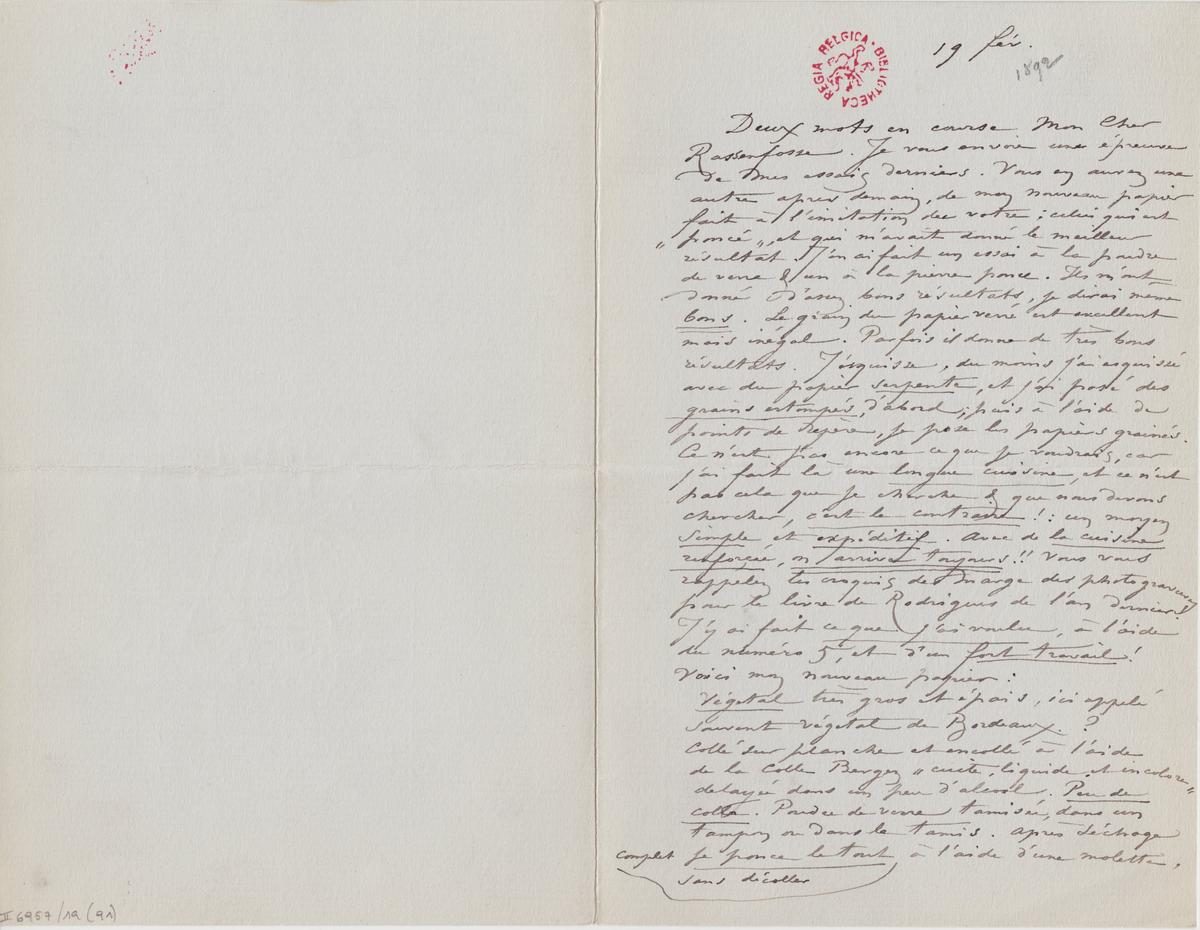 19 fév.
1892
REGIA BELGICA · BIBLIOTHECA
Deux mots en course Mon Cher
Rassenfosse. Je vous envoie une épreuve
de mes essais derniers. Vous en aurez une
autre après demain, de mon nouveau papier
fait à l'imitation du votre ; celui qui est
„ poncé „, et qui m'avait donné le meilleur
résultat. J'en ai fait un essai à la poudre
de verre & un à la pierre ponce. Ils m'ont
donné d'assez bons résultats, je dirai même
bons. Le grain du papier verré est excellent
mais inégal. Parfois il donne de très bons
résultats. J'esquisse, du moins j'ai esquissé
avec du papier serpente, et j'ai posé des
grains estompés, d'abord ; puis à l'aide de
points de repère, je pose les papiers grainés.
Ce n'est pas encore ce que je voudrais, car
j'ai fait là une longue cuisine, et ce n'est
pas cela que je cherche & que nous devons
chercher, c'est le contraire ! : un moyen
simple et expéditif. Avec de la cuisine
renforcée, on arrive toujours !! Vous vous
rappelez les croquis de marge des photogravures
pour le livre de Rodrigues de l'an dernier !
J'y ai fait ce que j'ai voulu, à l'aide
du numéro 5, et d'un fort travail !
Voici mon nouveau papier :
Végétal très gros et épais, ici appelé
souvent végétal de Bordeaux. ?
Collé sur planche et encollé à l'aide
de la Colle Berger „ cuite, liquide et incolore „
delayée dans un peu d'alcool. Peu de
colle. Poudre de verre tamisée, dans un
tampon ou dans le tamis. Après séchage
complet je ponce le tout, à l'aide d'une molette,
sans décoller
II 6957/19 (91)